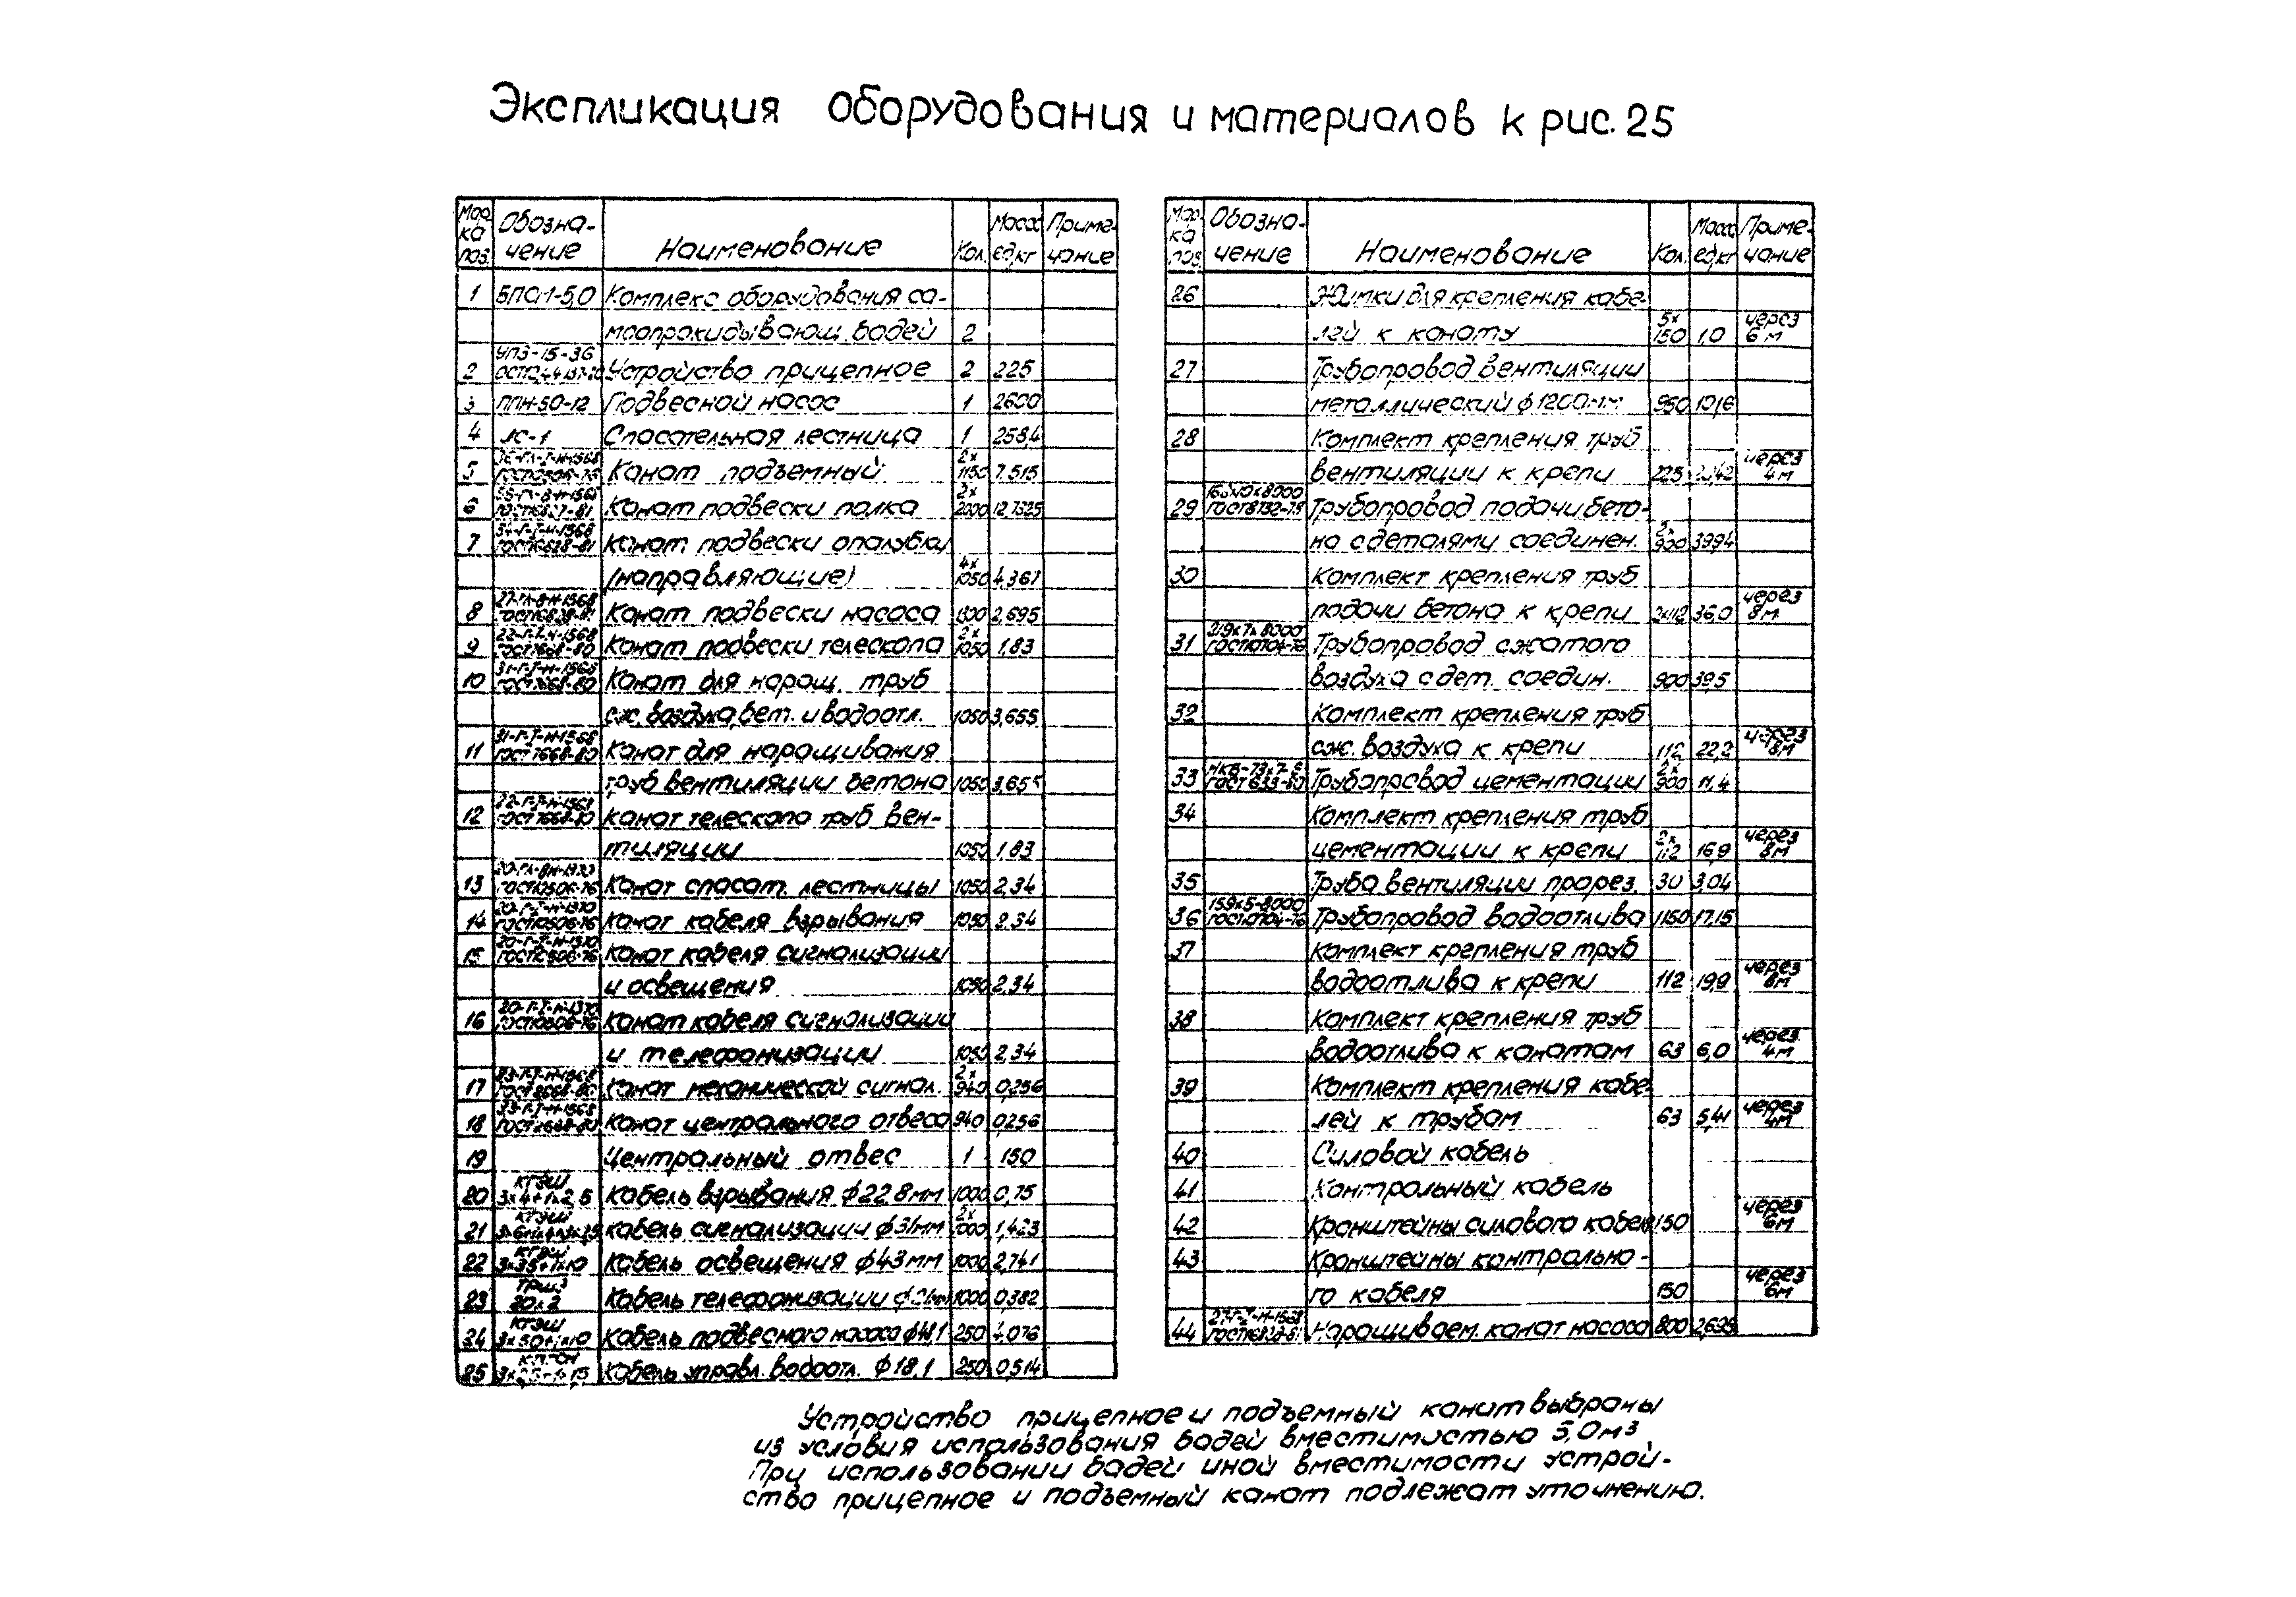 Экспликация оборудования и материалов к рис. 25
Мар ка поз. Обозна- чение Наименование Кол. Масса ед,кг Приме- чание
1 БПСМ-5,0 Комплекс оборудования са-
моопрокидывающ. бадей 2
2 УПЭ-15-36 Устройство прицепное 2 225
3 ППН-50-12 Подвесной насос 1 2600
4 ЛС-1 Спасательная лестница 1 258,4
5 Канат подъемный 2х 1150 7.515
6 Канат подвески полка 2х 2000
7 Канат подвески опалубки
(направляющие) 4х 1050 4,367
8 Канат подвески насоса 2,695
9 Канат подвески телескопа 2х 1050 1,83
10 31-Г-I-Н-1568 ГОСТ 7668-80 Канат для наращ. труб
сж. воздуха, бет. и водоотл. 1050 3,655
11 31-Г-I-Н-1568 ГОСТ 7668-80 Канат для наращивания
труб вентиляции бетона 1050 3,655
12 ГОСТ 7668-80 Канат телескопа труб вен-
тиляции 1050 1,83
13 Канат спасат. лестницы 1050 2,34
14 Канат кабеля взрывания 1050 2.34
15 Канат кабеля сигнализации
и освещения 1050 2,34
16 Канат кабеля сигнализации
и телефонизации 1050 2,34
17 Канат механической сигнал. 2х 940 0,256
18 Канат центрального отвеса 940 0,256
19 Центральный отвес 1 150
20 КГЭШ 3х4+1х2,5 Кабель взрывания ф22,8мм 1000 0,75
21 КГЭШ Кабель сигнализации ф31мм 2х 1000 1,423
22 КГЭШ 3х35+1х10 Кабель освещения ф43мм 1000 2,741
23 20х2 Кабель телефонизации 1000 0,382
24 КГЭШ 3х50+1х10 Кабель подвесного насоса ф48,1 250 4,076
25 Кабель управл. водоотл. ф18,1 250 0,514
Мар ка поз. Обозна- чение Наименование Кол. Масса ед,кг Приме- чание
26 Жимки для крепления кабе-
лей к канату 5х 150 1,0 через 6 м
27 Трубопровод вентиляции
металлический ф1200мм 950
28 Комплект крепления труб
вентиляции к крепи 225 через 4м
29 ГОСТ 8732-78 Трубопровод подачи бето-
на с деталями соединен. 2х 900 39,94
30 Комплект крепления труб
подачи бетона к крепи 2х112 36,0 через 8м
31 219х7х8000 ГОСТ 10704-76 Трубопровод сжатого
воздуха с дет. соедин. 900 39,5
32 Комплект крепления труб
сж. воздуха к крепи 112 22,2 через 8м
33 ГОСТ 633-80 Трубопровод цементации 2х 900 11,4
34 Комплект крепления труб
цементации к крепи 2х 112 16,9 через 8м
35 Труба вентиляции прорез. 30 3,04
36 159х5-8000 ГОСТ 10704-76 Трубопровод водоотлива 1150 17,15
37 Комплект крепления труб
водоотлива к крепи 112 19,9 через 8м
38 Комплект крепления труб
водоотлива к канатам 63 6,0 через 4м
39 Комплект крепления кабе-
лей к трубам 63 5,41 через 4м
40 Силовой кабель
41 Контрольный кабель
42 Кронштейны силового кабеля 150 через 6м
43 Кронштейны контрольно-
го кабеля 150 через 6м
44 Наращиваем. канат насоса 800
Устройство прицепное и подъемный канат выбраны
из условия использования бадей вместимостью 5,0м³
При использовании бадей иной вместимости устрой-
ство прицепное и подъемный канат подлежат уточнению.